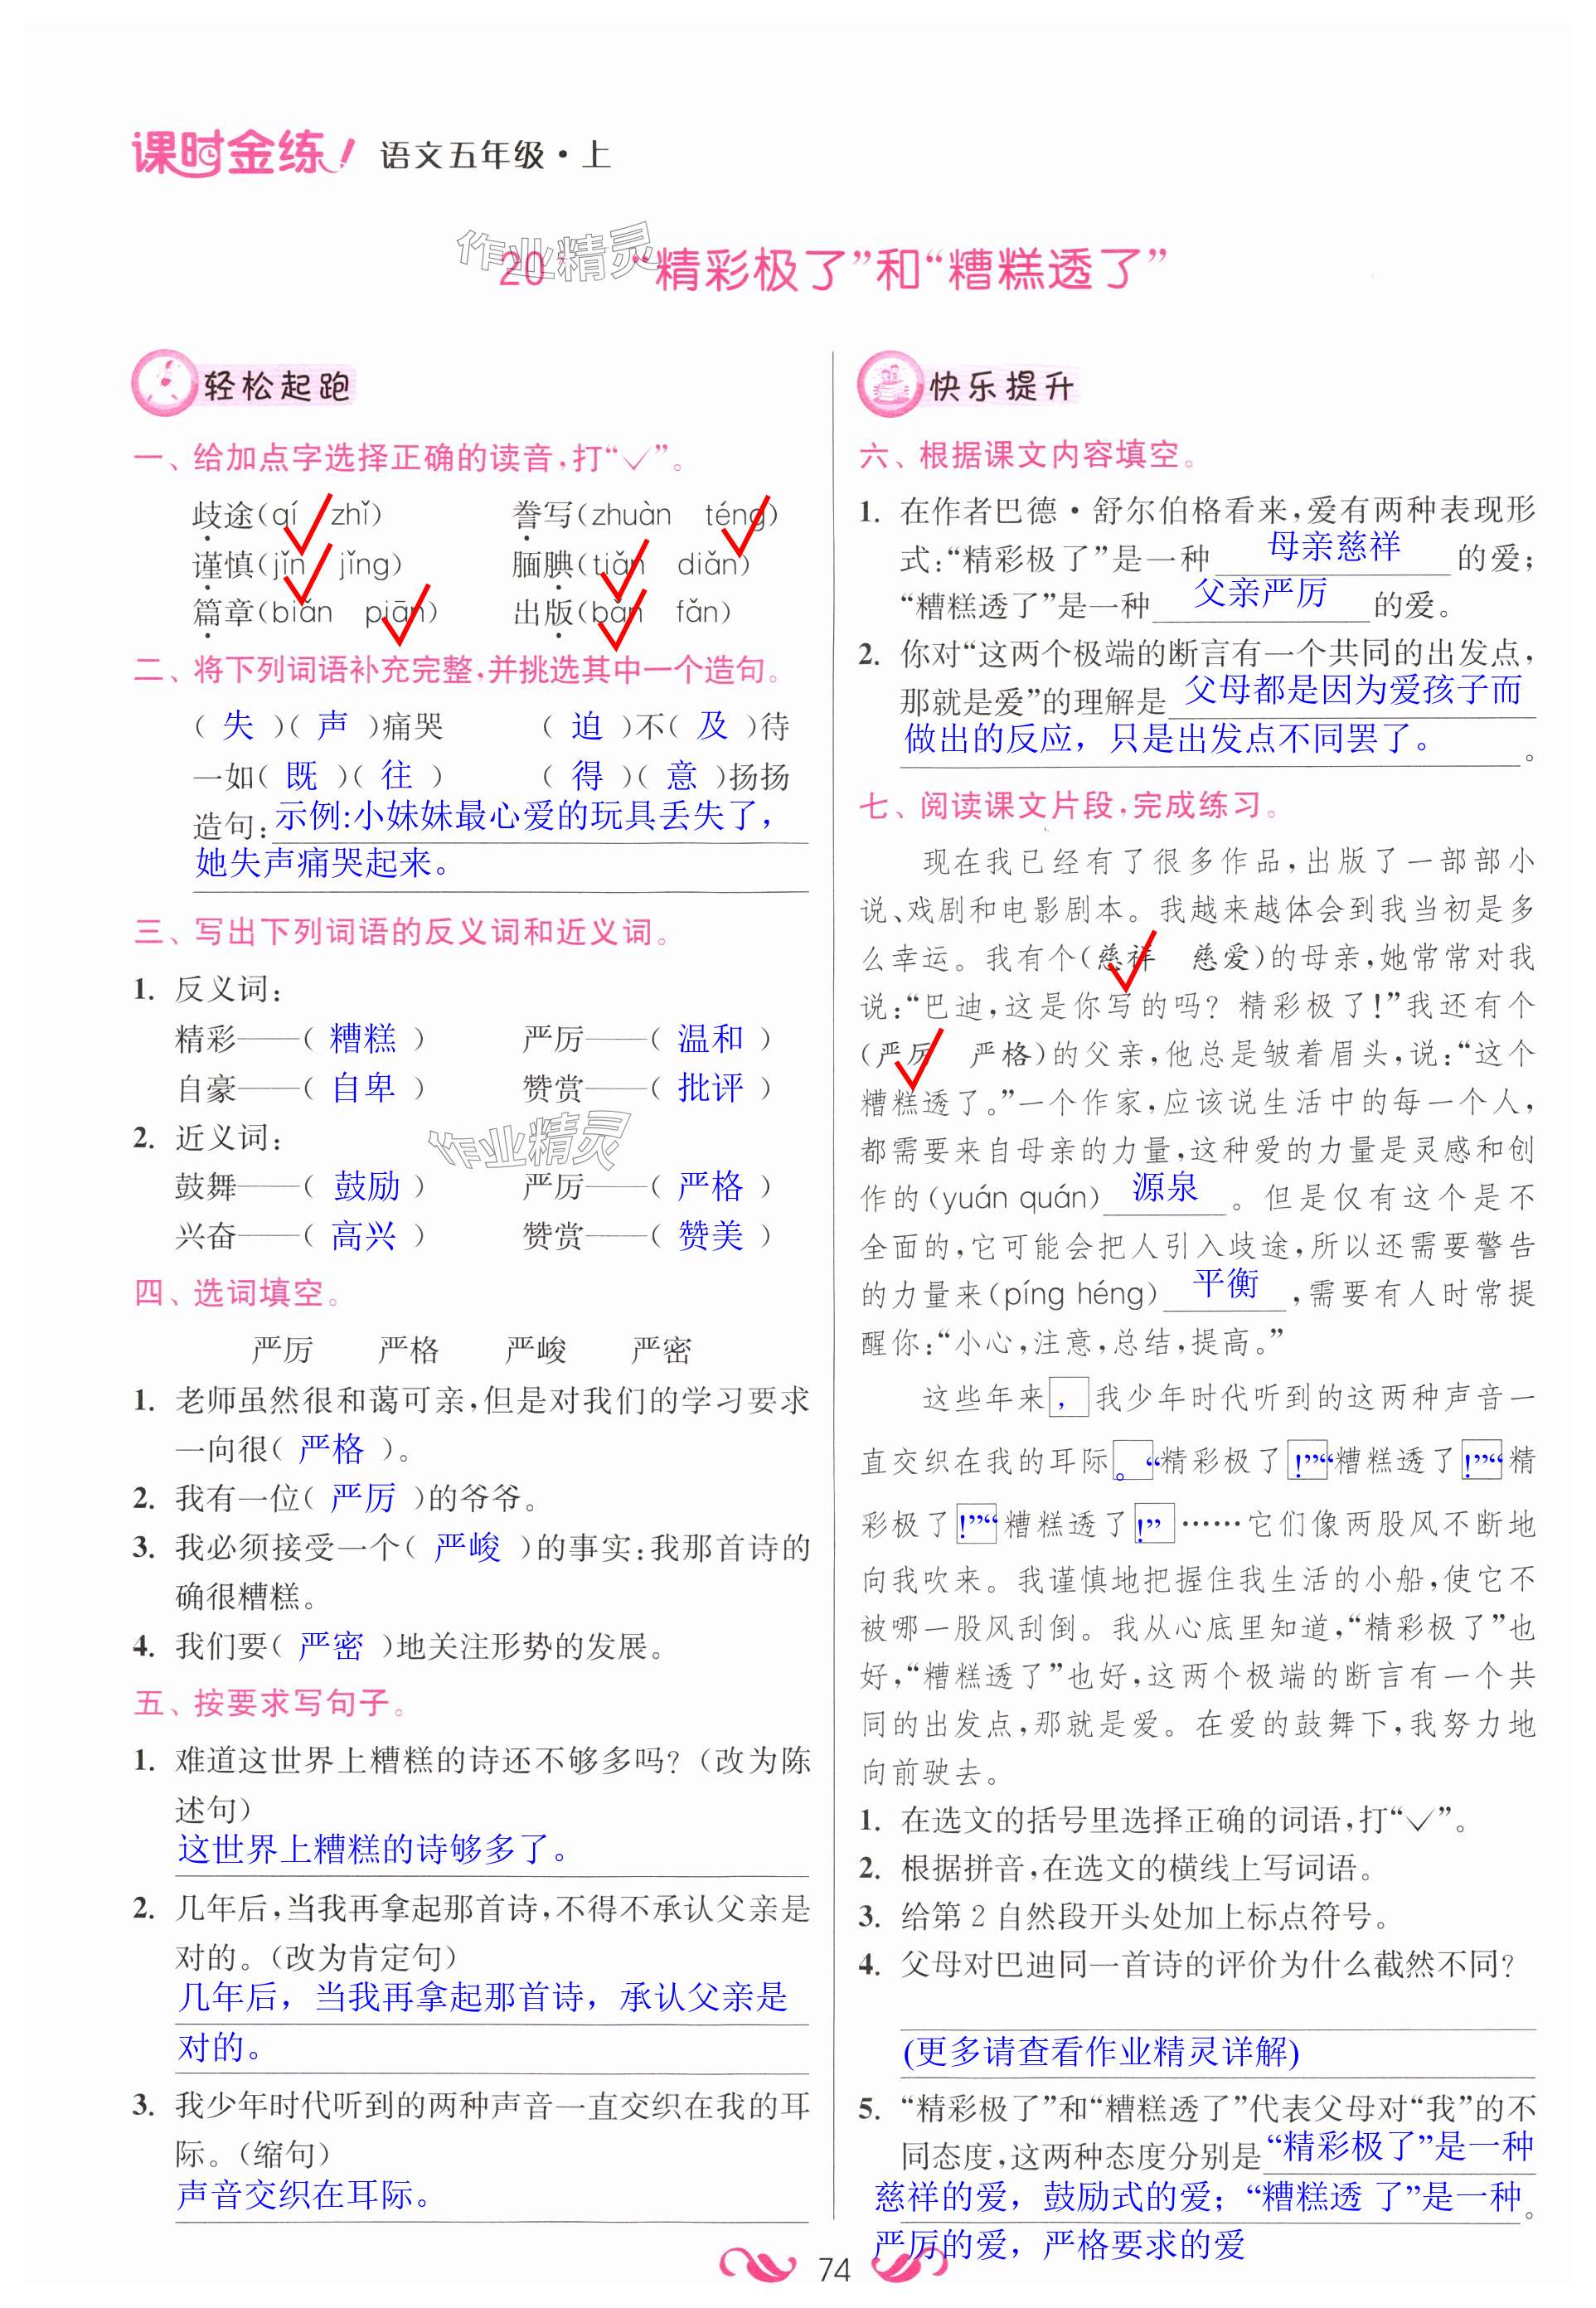 课时金练! 语文五年级·上
作业精灵
20 “精彩极了”和“糟糕透了”
轻松起跑
一、给加点字选择正确的读音,打“✓”。
歧途(qí zhǐ) 誊写(zhuàn téng)
谨慎(jǐn jǐng) 腼腆(tiǎn diǎn)
篇章(biān piān) 出版(bǎn fǎn)
二、将下列词语补充完整,并挑选其中一个造句。
( 失 )( 声 )痛哭 ( 迫 )不( 及 )待
一如( 既 )( 往 ) ( 得 )( 意 )扬扬
造句: 示例:小妹妹最心爱的玩具丢失了,
她失声痛哭起来。
三、写出下列词语的反义词和近义词。
1. 反义词:
精彩——( 糟糕 ) 严厉——( 温和 )
自豪——( 自卑 ) 赞赏——( 批评 )
2. 近义词:
作业精灵
鼓舞——( 鼓励 ) 严厉——( 严格 )
兴奋——( 高兴 ) 赞赏——( 赞美 )
四、选词填空。
严厉 严格 严峻 严密
1. 老师虽然很和蔼可亲,但是对我们的学习要求
一向很( 严格 )。
2. 我有一位( 严厉 )的爷爷。
3. 我必须接受一个( 严峻 )的事实:我那首诗的
确很糟糕。
4. 我们要( 严密 )地关注形势的发展。
五、按要求写句子。
1. 难道这世界上糟糕的诗还不够多吗?(改为陈
述句)
这世界上糟糕的诗够多了。
2. 几年后,当我再拿起那首诗,不得不承认父亲是
对的。(改为肯定句)
几年后，当我再拿起那首诗，承认父亲是
对的。
3. 我少年时代听到的两种声音一直交织在我的耳
际。(缩句)
声音交织在耳际。
快乐提升
六、根据课文内容填空。
1. 在作者巴德·舒尔伯格看来,爱有两种表现形
式:“精彩极了”是一种 母亲慈祥 的爱;
“糟糕透了”是一种 父亲严厉 的爱。
2. 你对“这两个极端的断言有一个共同的出发点,
那就是爱”的理解是 父母都是因为爱孩子而
做出的反应，只是出发点不同罢了。 。
七、阅读课文片段,完成练习。
现在我已经有了很多作品,出版了一部部小
说、戏剧和电影剧本。我越来越体会到我当初是多
么幸运。我有个(慈祥 慈爱)的母亲,她常常对我
说:“巴迪,这是你写的吗?精彩极了!”我还有个
(严厉 严格)的父亲,他总是皱着眉头,说:“这个
糟糕透了。”一个作家,应该说生活中的每一个人,
都需要来自母亲的力量,这种爱的力量是灵感和创
作的(yuán quán) 源泉 。但是仅有这个是不
全面的,它可能会把人引入歧途,所以还需要警告
的力量来(píng héng) 平衡 ,需要有人时常提
醒你:“小心,注意,总结,提高。”
这些年来 , 我少年时代听到的这两种声音一
直交织在我的耳际 。“ 精彩极了 !”“ 糟糕透了 !”“ 精
彩极了 !”“ 糟糕透了 !” ……它们像两股风不断地
向我吹来。我谨慎地把握住我生活的小船,使它不
被哪一股风刮倒。我从心底里知道,“精彩极了”也
好,“糟糕透了”也好,这两个极端的断言有一个共
同的出发点,那就是爱。在爱的鼓舞下,我努力地
向前驶去。
1. 在选文的括号里选择正确的词语,打“✓”。
2. 根据拼音,在选文的横线上写词语。
3. 给第 2 自然段开头处加上标点符号。
4. 父母对巴迪同一首诗的评价为什么截然不同?
(更多请查看作业精灵详解)
5. “精彩极了”和“糟糕透了”代表父母对“我”的不
同态度,这两种态度分别是 “精彩极了”是一种
慈祥的爱，鼓励式的爱；“糟糕透 了”是一种 。
严厉的爱，严格要求的爱
74